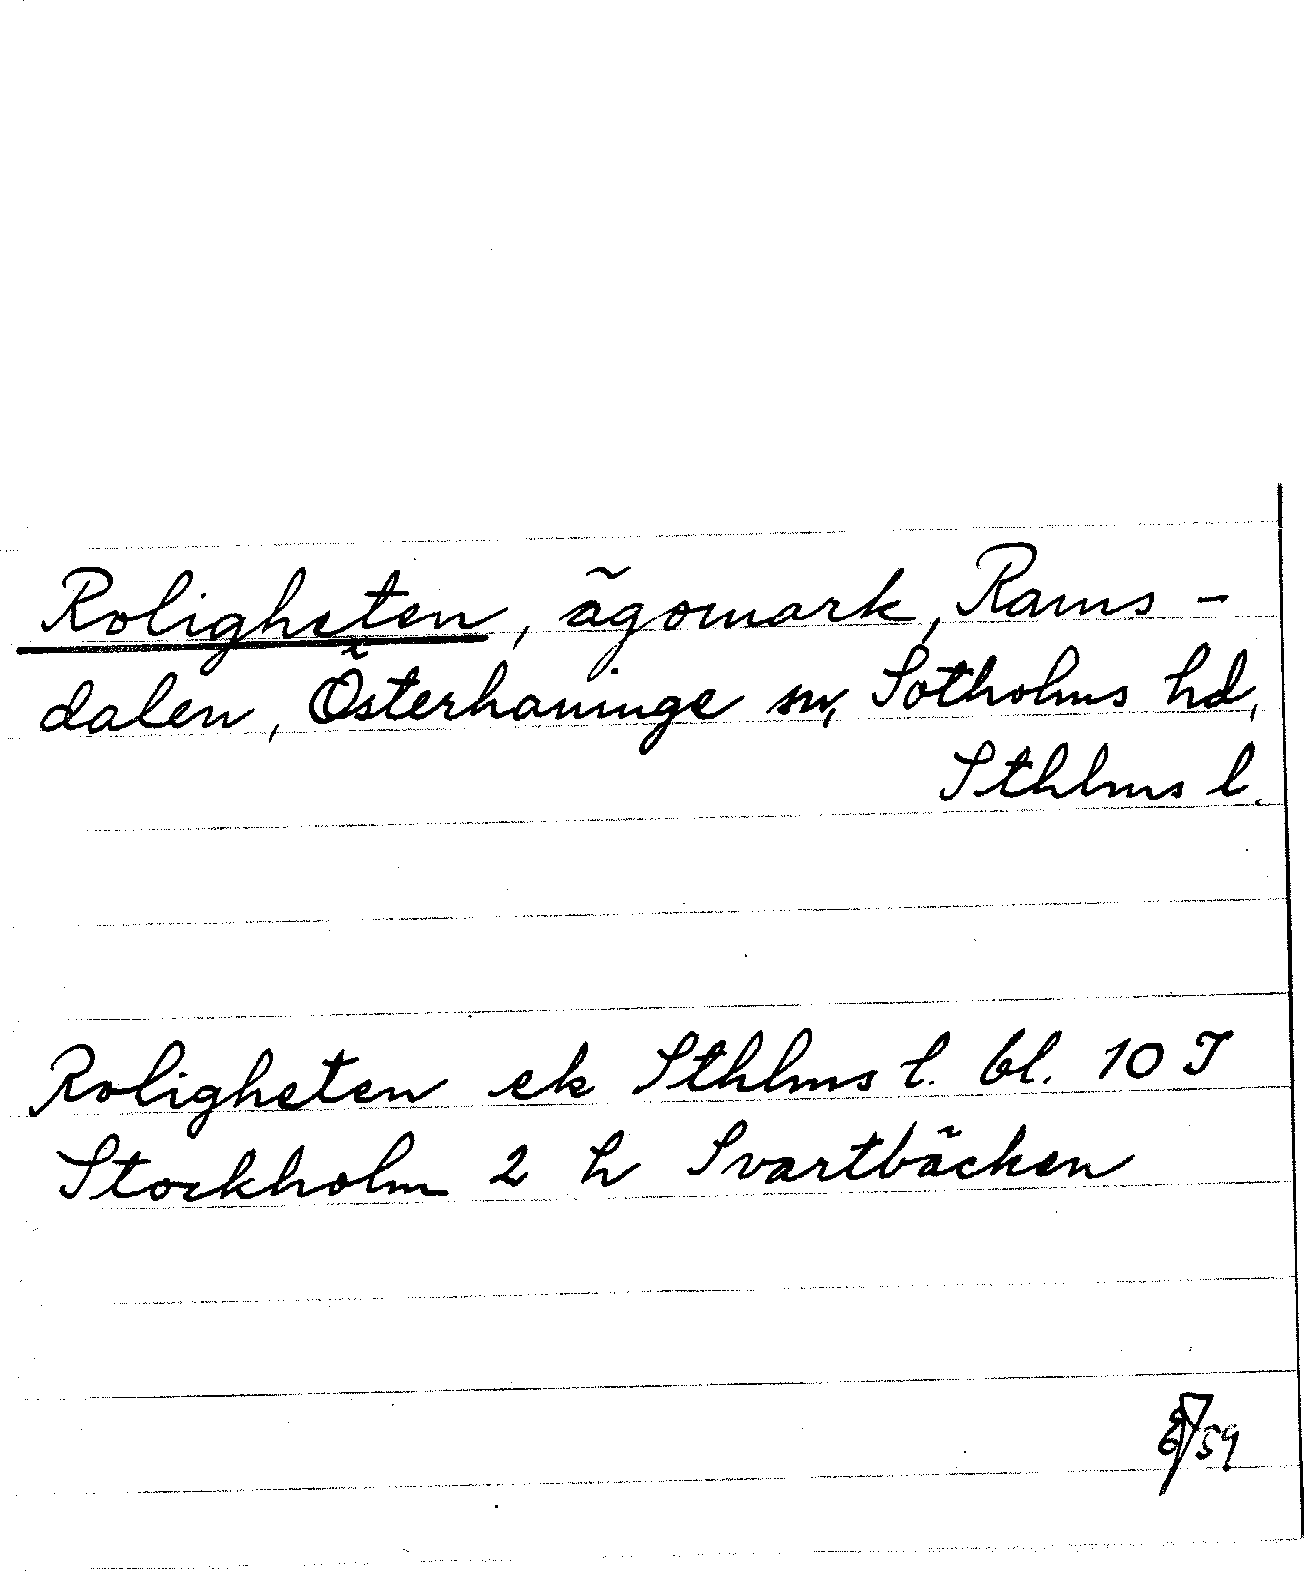 Roligheten, ägomark, Rams-
dalen, Österhaninge sn, Sotholms hd,
Sthlms l.
Roligheten ek Sthlms l. bl. 10 I
Stockholm 2 h Svartbäcken
59